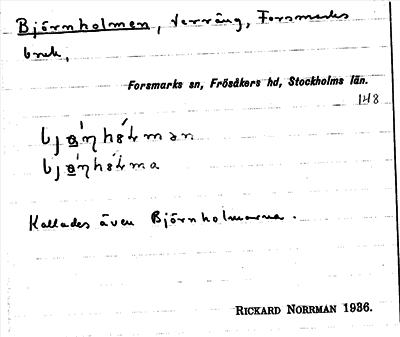 Björnholmen, terräng, Forsmarks
bruk,
Forsmarks sn, Frösåkers hd, Stockholms län.
148
Kallades även Björnholmarna.
RICKARD NORRMAN 1936.